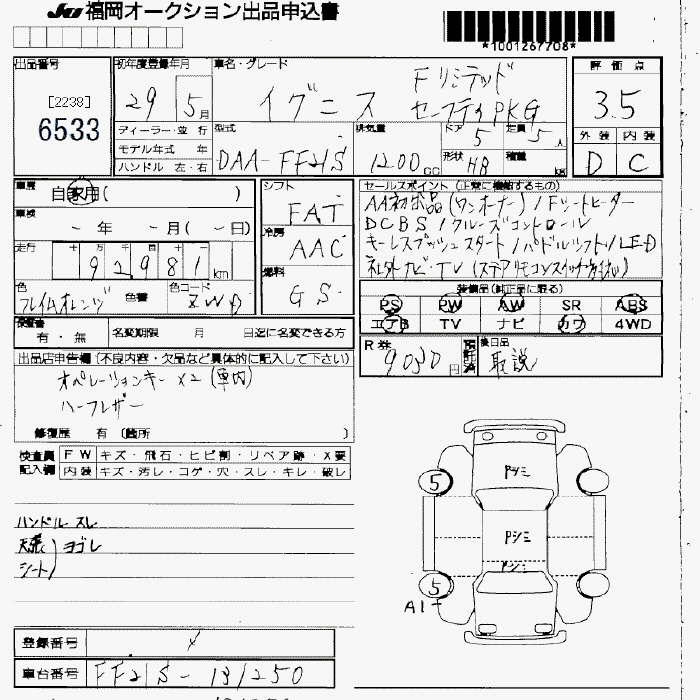 JU 福岡オークション出品申込書
*1001267708*
出品番号
[2238]
6533
初年度登録年月
29 5月
車名・グレード
イグニス
Fリミテッド
セーフティPKG
評価点
3.5
外装 内装
D C
ディーラー・並行
モデル年式 年
ハンドル 左・右
型式
DAA-FF21S
排気量
1200cc
ドア
5
定員
5人
形状
HB
積載
kg
車歴
自家用( )
車検
- 年 - 月(- 日)
走行
十 万 千 百 十 一
92981km
色
フレイムオレンジ
色替
色コード
ZWD
シフト
FAT
冷房
AAC
燃料
GS
セールスポイント (正常に機能するもの)
AA初出品(ワンオーナー)/Fシートヒーター
DCBS/クルーズコントロール
キーレスプッシュスタート/パドルシフト/LED
社外ナビ・TV(ステアリモコンスイッチ
装備品(純正品に限る)
PS PW AW SR ABS
エアB TV ナビ カワ 4WD
保証書
有・無
名変期限 月 日迄に名変できる方
R券
9030円
預託済
後日品
取説
出品店申告欄(不良内容・欠品など具体的に記入して下さい)
オペレーションキー×2(車内)
ハーフレザー
修復歴 有 〔箇所 〕
検査員記入欄
FW キズ・飛石・ヒビ割・リペア跡・X要
内装 キズ・汚レ・コゲ・穴・スレ・キレ・破レ
ハンドル スレ
天張)ヨゴレ
シート)
Pシミ
5
Pシミ
Pシミ
5
A1
登録番号
車台番号 FF21S-131250